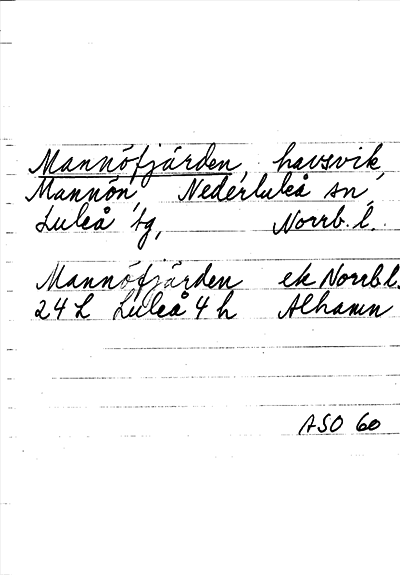 Mannöfjärden, havsvik,
Mannön, Nederluleå sn,
Luleå tg, Norrb. l.
Mannöfjärden ek Norrb l.
24 L Luleå 4 h Alhamn
ASO 60